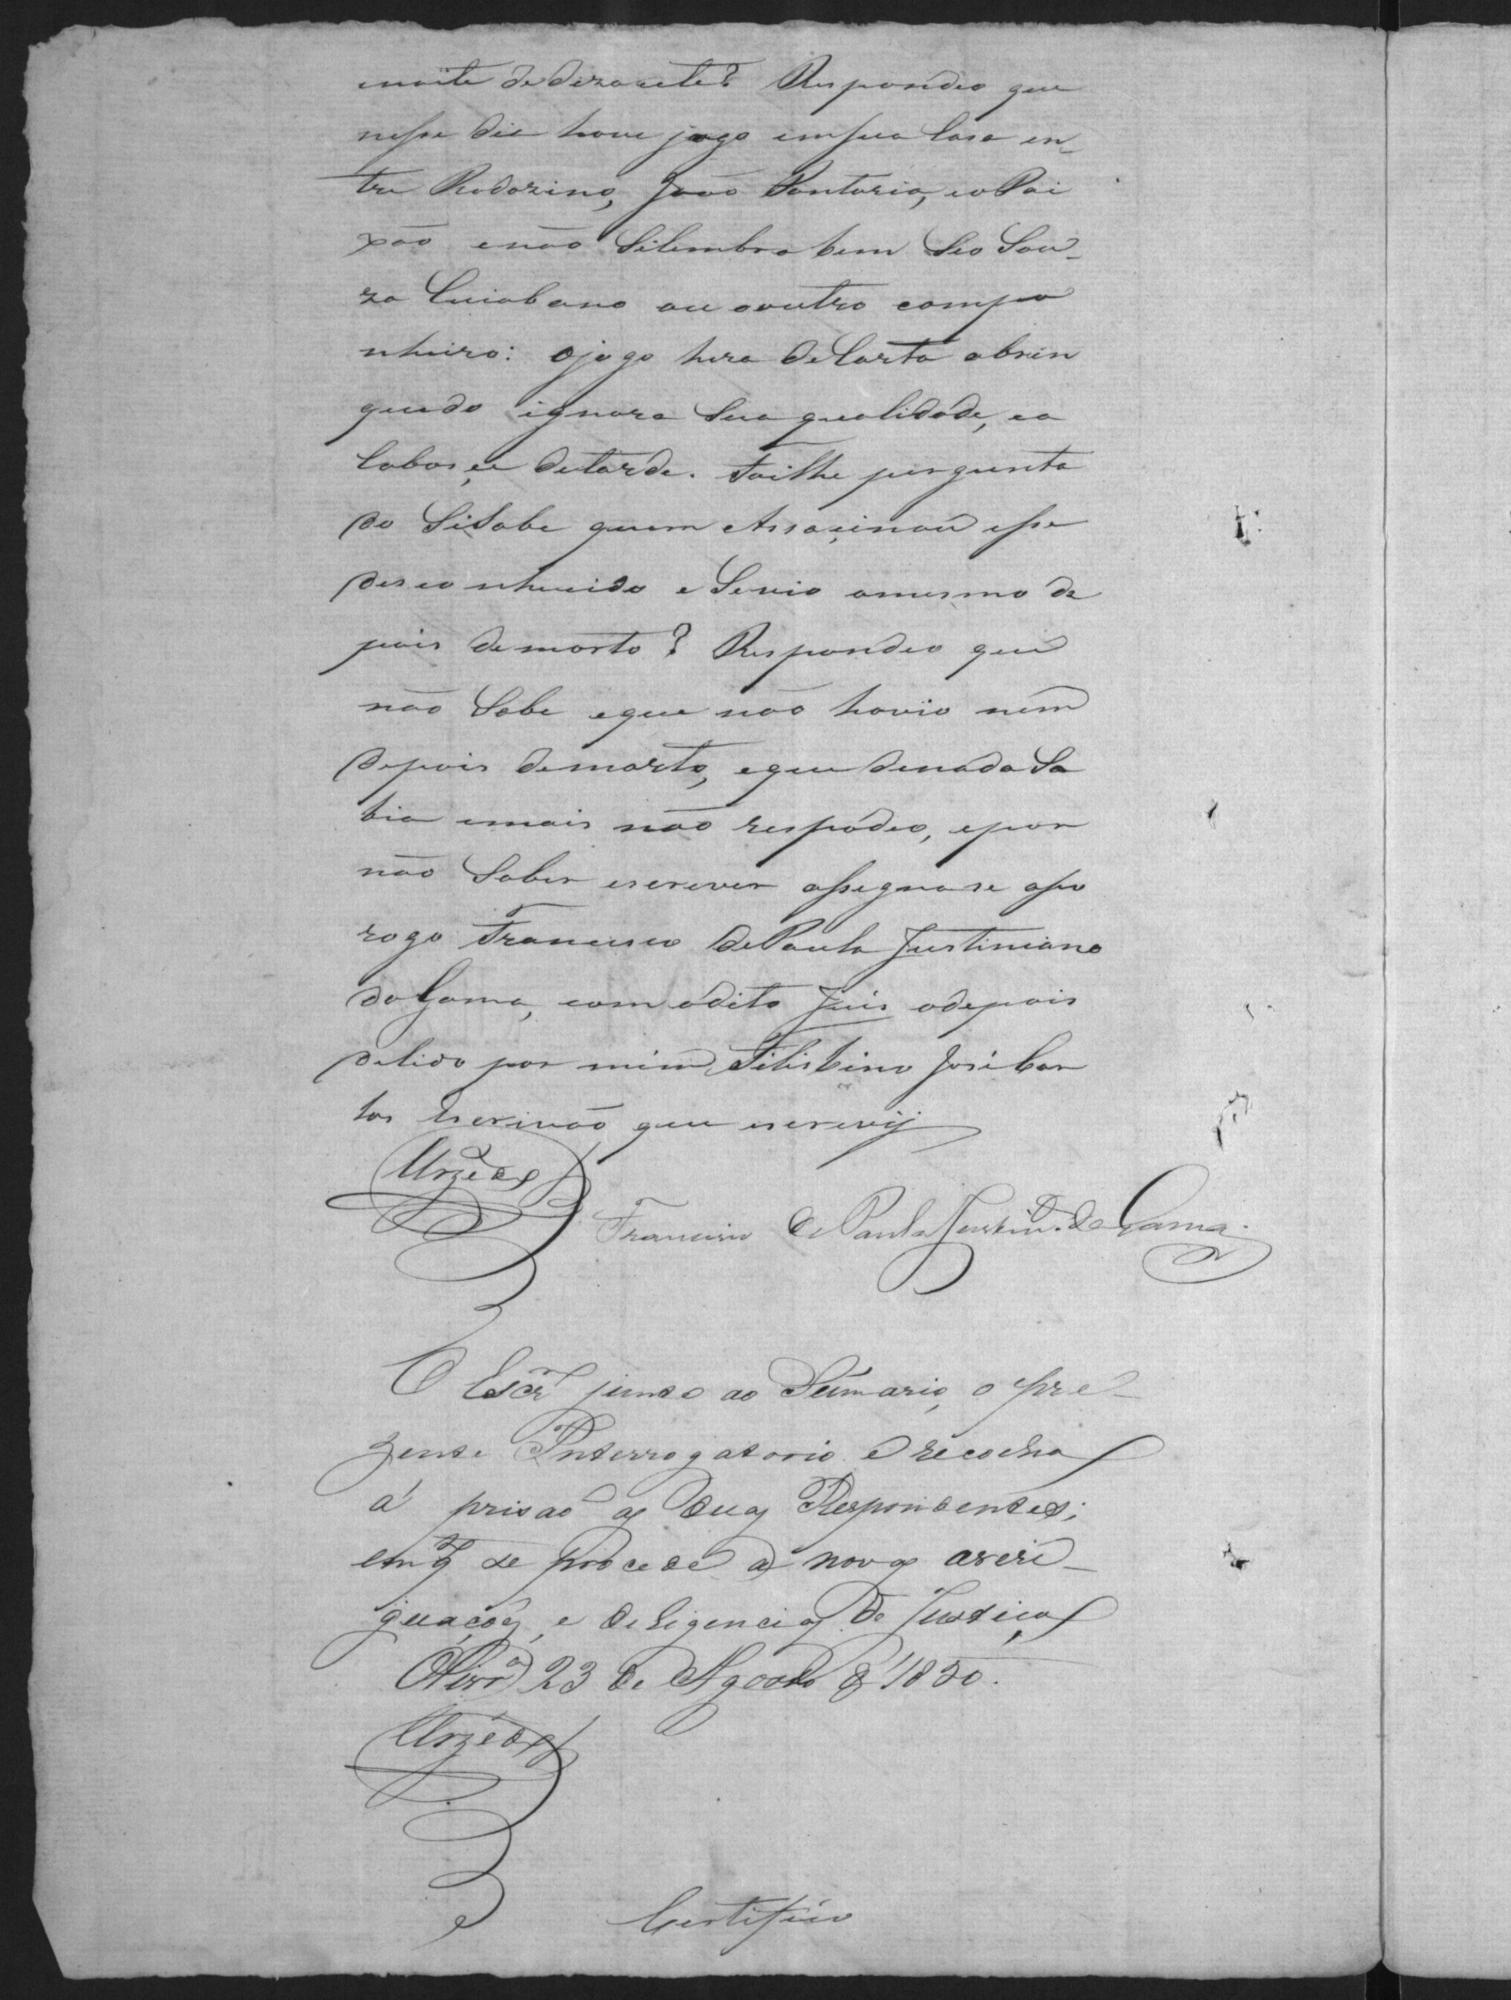 noite de dezacete? Respondeo que
nesse dia houve jogo em sua Casa en-
tre Rodozino, João Pontaria, eo Pai
xão enão Selembra bem Seo Sou-
za Cuiabano ou ooutro compa
nheiro: ojogo hera deCarta abrin
quedo ignora Sua qualidade, ea
Cabou, ce detarde. Foilhe pergunta
do SeSabe quem Assacinou esse
desconhecido e Sevio omesmo de
pois demorto? Respondeo que
não Sabe eque não havio nem
depois demorto, eque denada Sa
bia emais não respodeo, epor
não Saber escrever assegnase aseo
rogo Francisco dePaula Justiniano
daGama, com odito Juis odepois
delido por mim Felisbino José Bar
tos Escrivão que escrevij
Urzedes
Francisco de Paula Justin. da Gama.
O Escr.m junte ao Sumario, o pre-
zente Interrogatorio e recolha
á prisao as duas Respondentes;
emq.to se procede a novas averi-
guações, e deligencias de Justiça
Olivr.a 23 de Agosto d' 1850.
Urzedes
Certifico